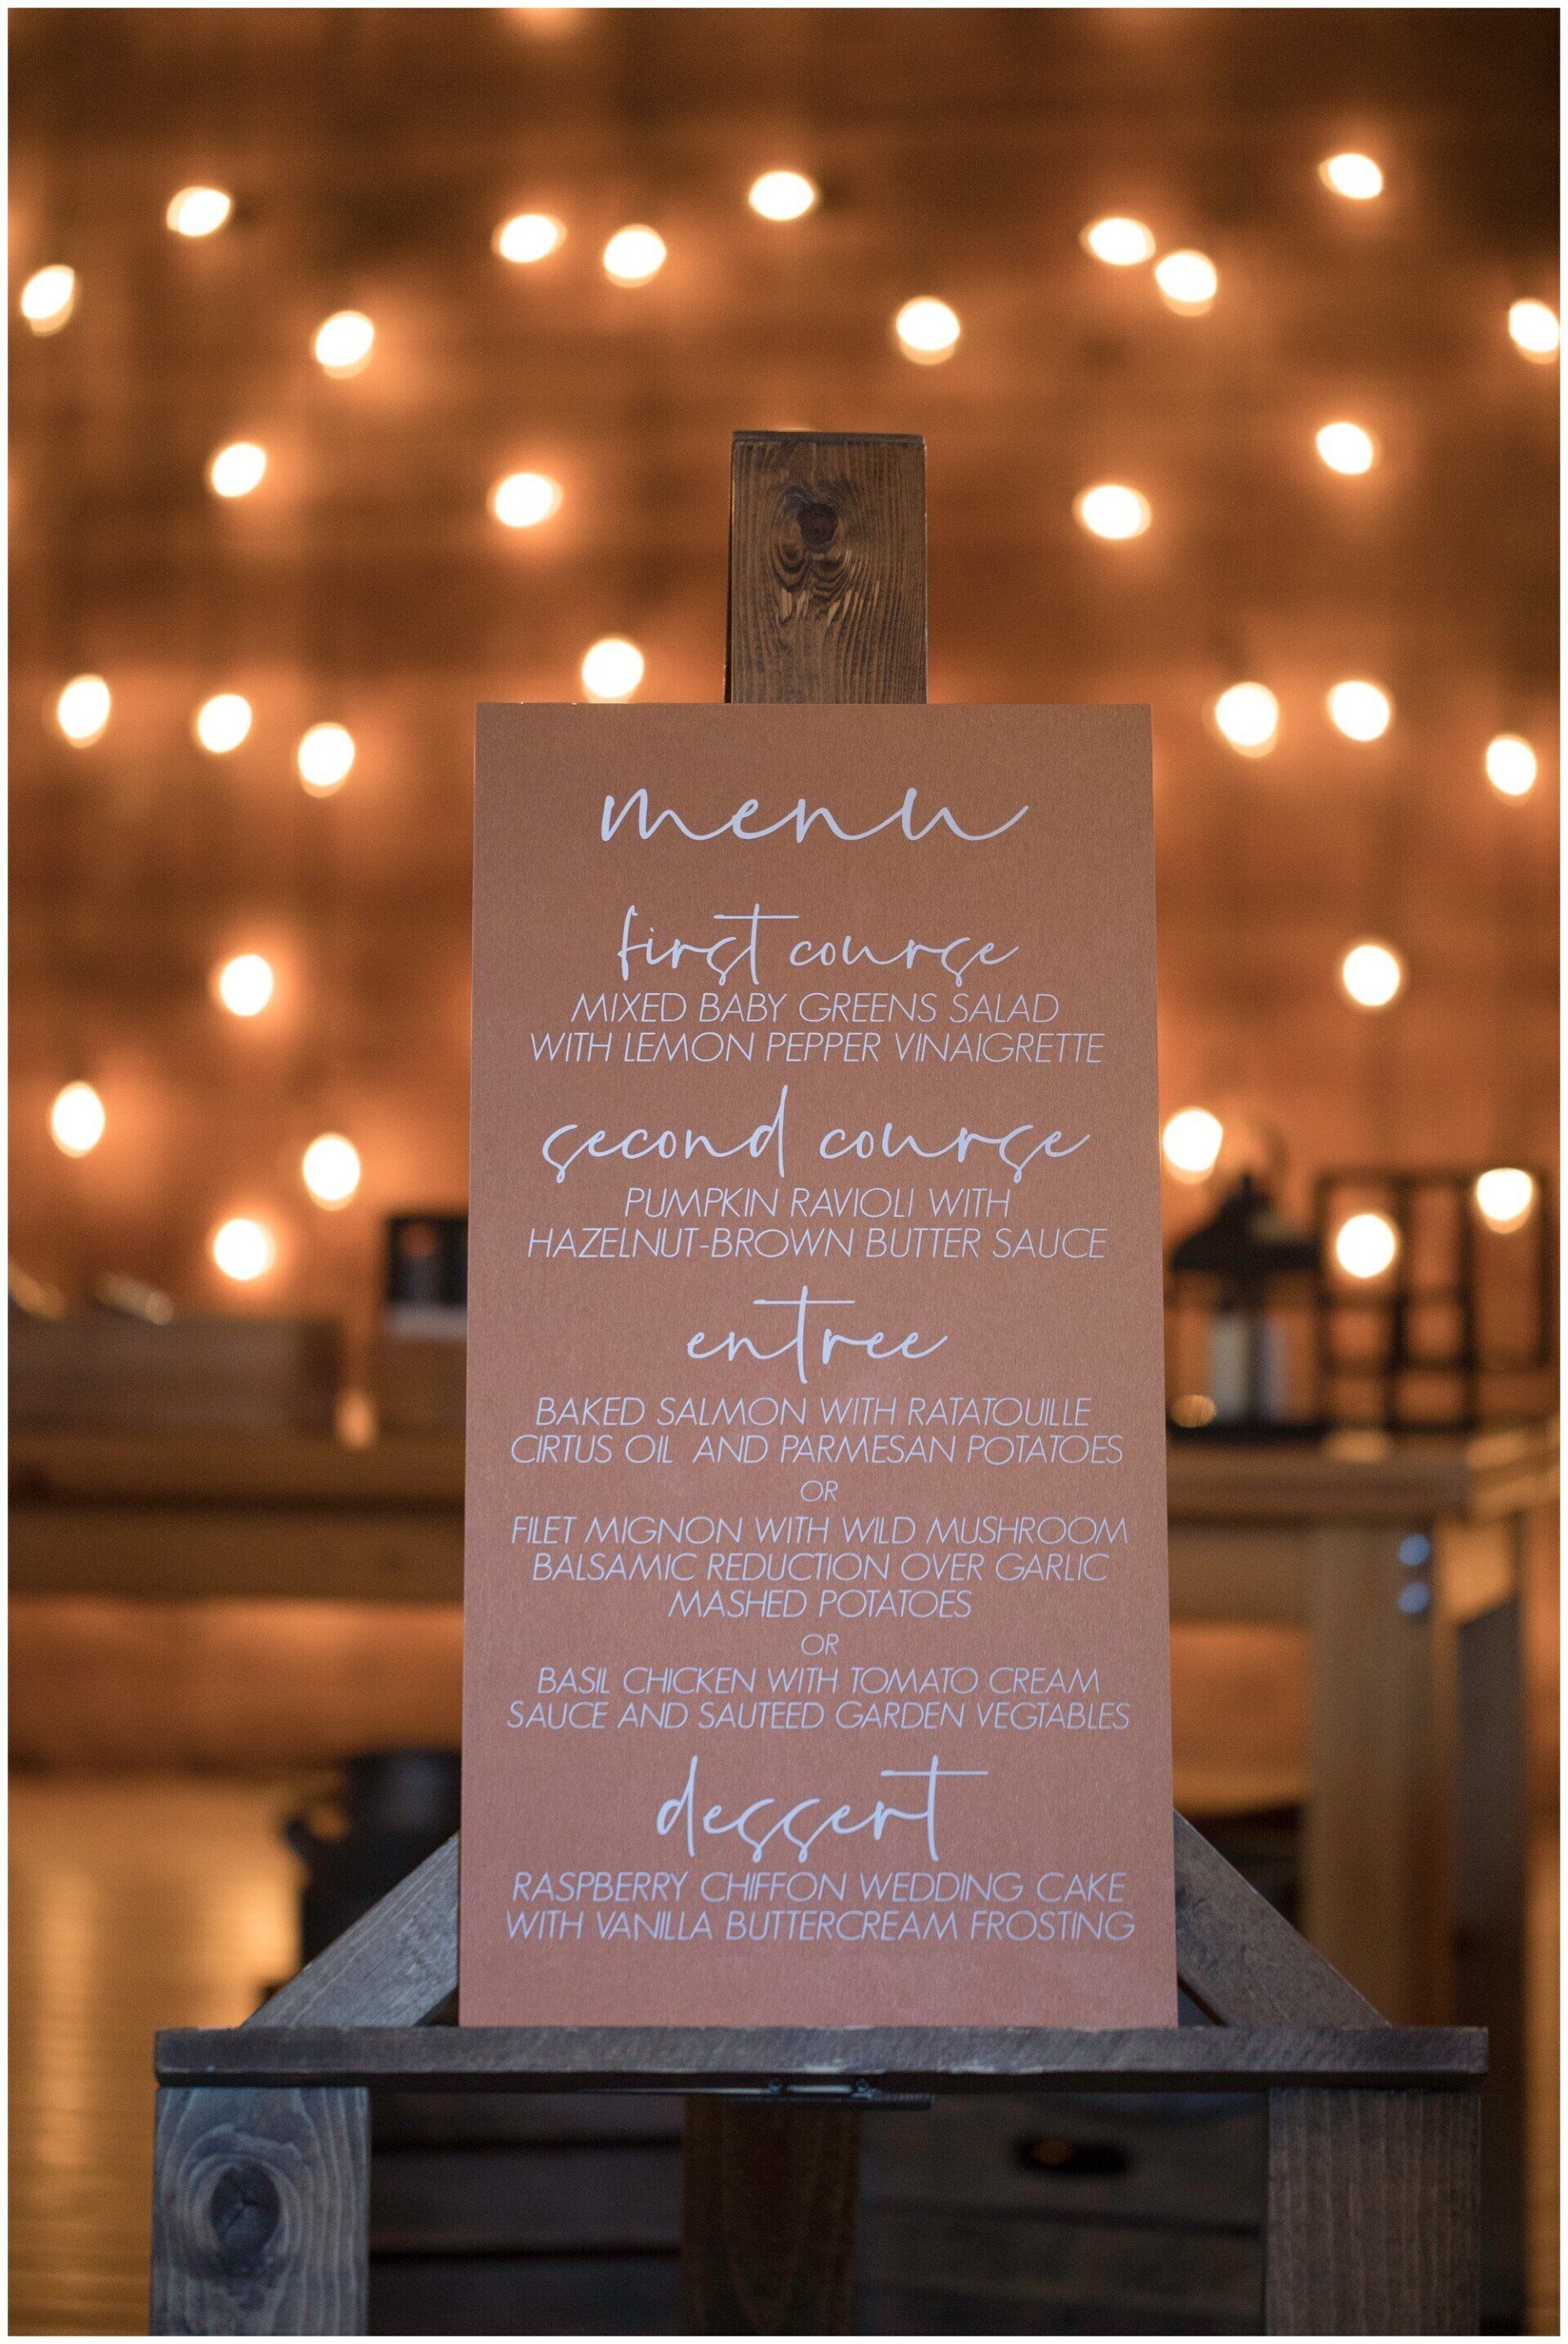 menu
first course
MIXED BABY GREENS SALAD
WITH LEMON PEPPER VINAIGRETTE
second course
PUMPKIN RAVIOLI WITH
HAZELNUT-BROWN BUTTER SAUCE
entree
BAKED SALMON WITH RATATOUILLE
CIRTUS OIL AND PARMESAN POTATOES
OR
FILET MIGNON WITH WILD MUSHROOM
BALSAMIC REDUCTION OVER GARLIC
MASHED POTATOES
OR
BASIL CHICKEN WITH TOMATO CREAM
SAUCE AND SAUTEED GARDEN VEGTABLES
dessert
RASPBERRY CHIFFON WEDDING CAKE
WITH VANILLA BUTTERCREAM FROSTING